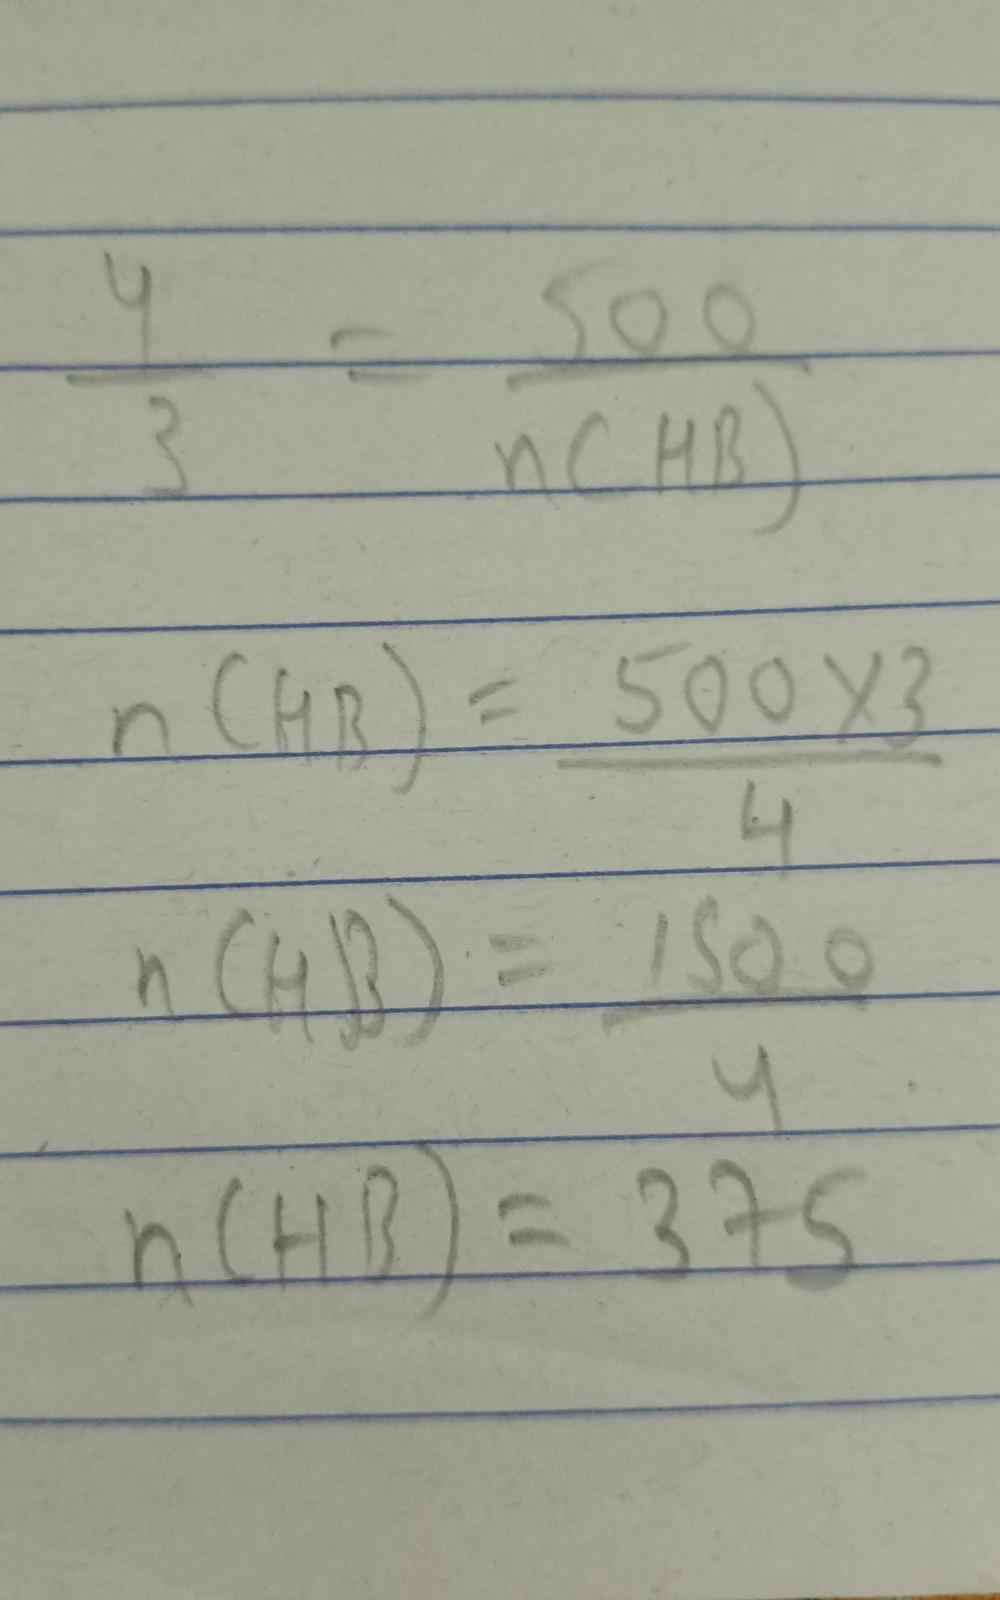 4/3 = 500/n(HB)
n(HB) = 500x3/4
n(HB) = 1500/4
n(HB) = 375